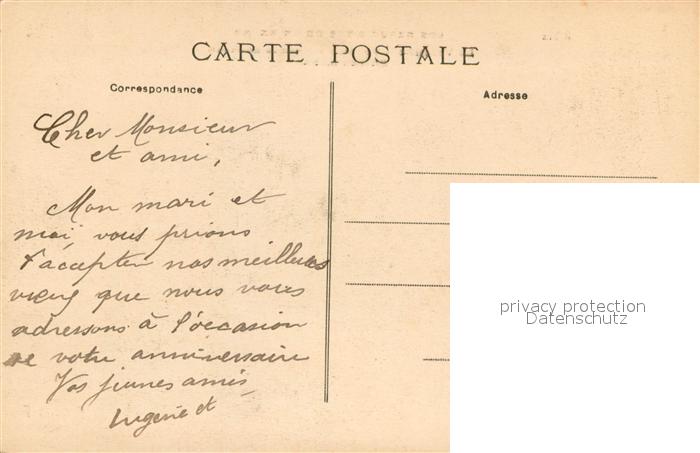 CARTE POSTALE
Correspondance
Adresse
Cher Monsieur
et ami,
Mon mari et
moi, vous prions
d'accepter nos meilleures
vœux que nous vous
adressons à l'occasion
de votre anniversaire
Vos jeunes amis
et
privacy protection
Datenschutz